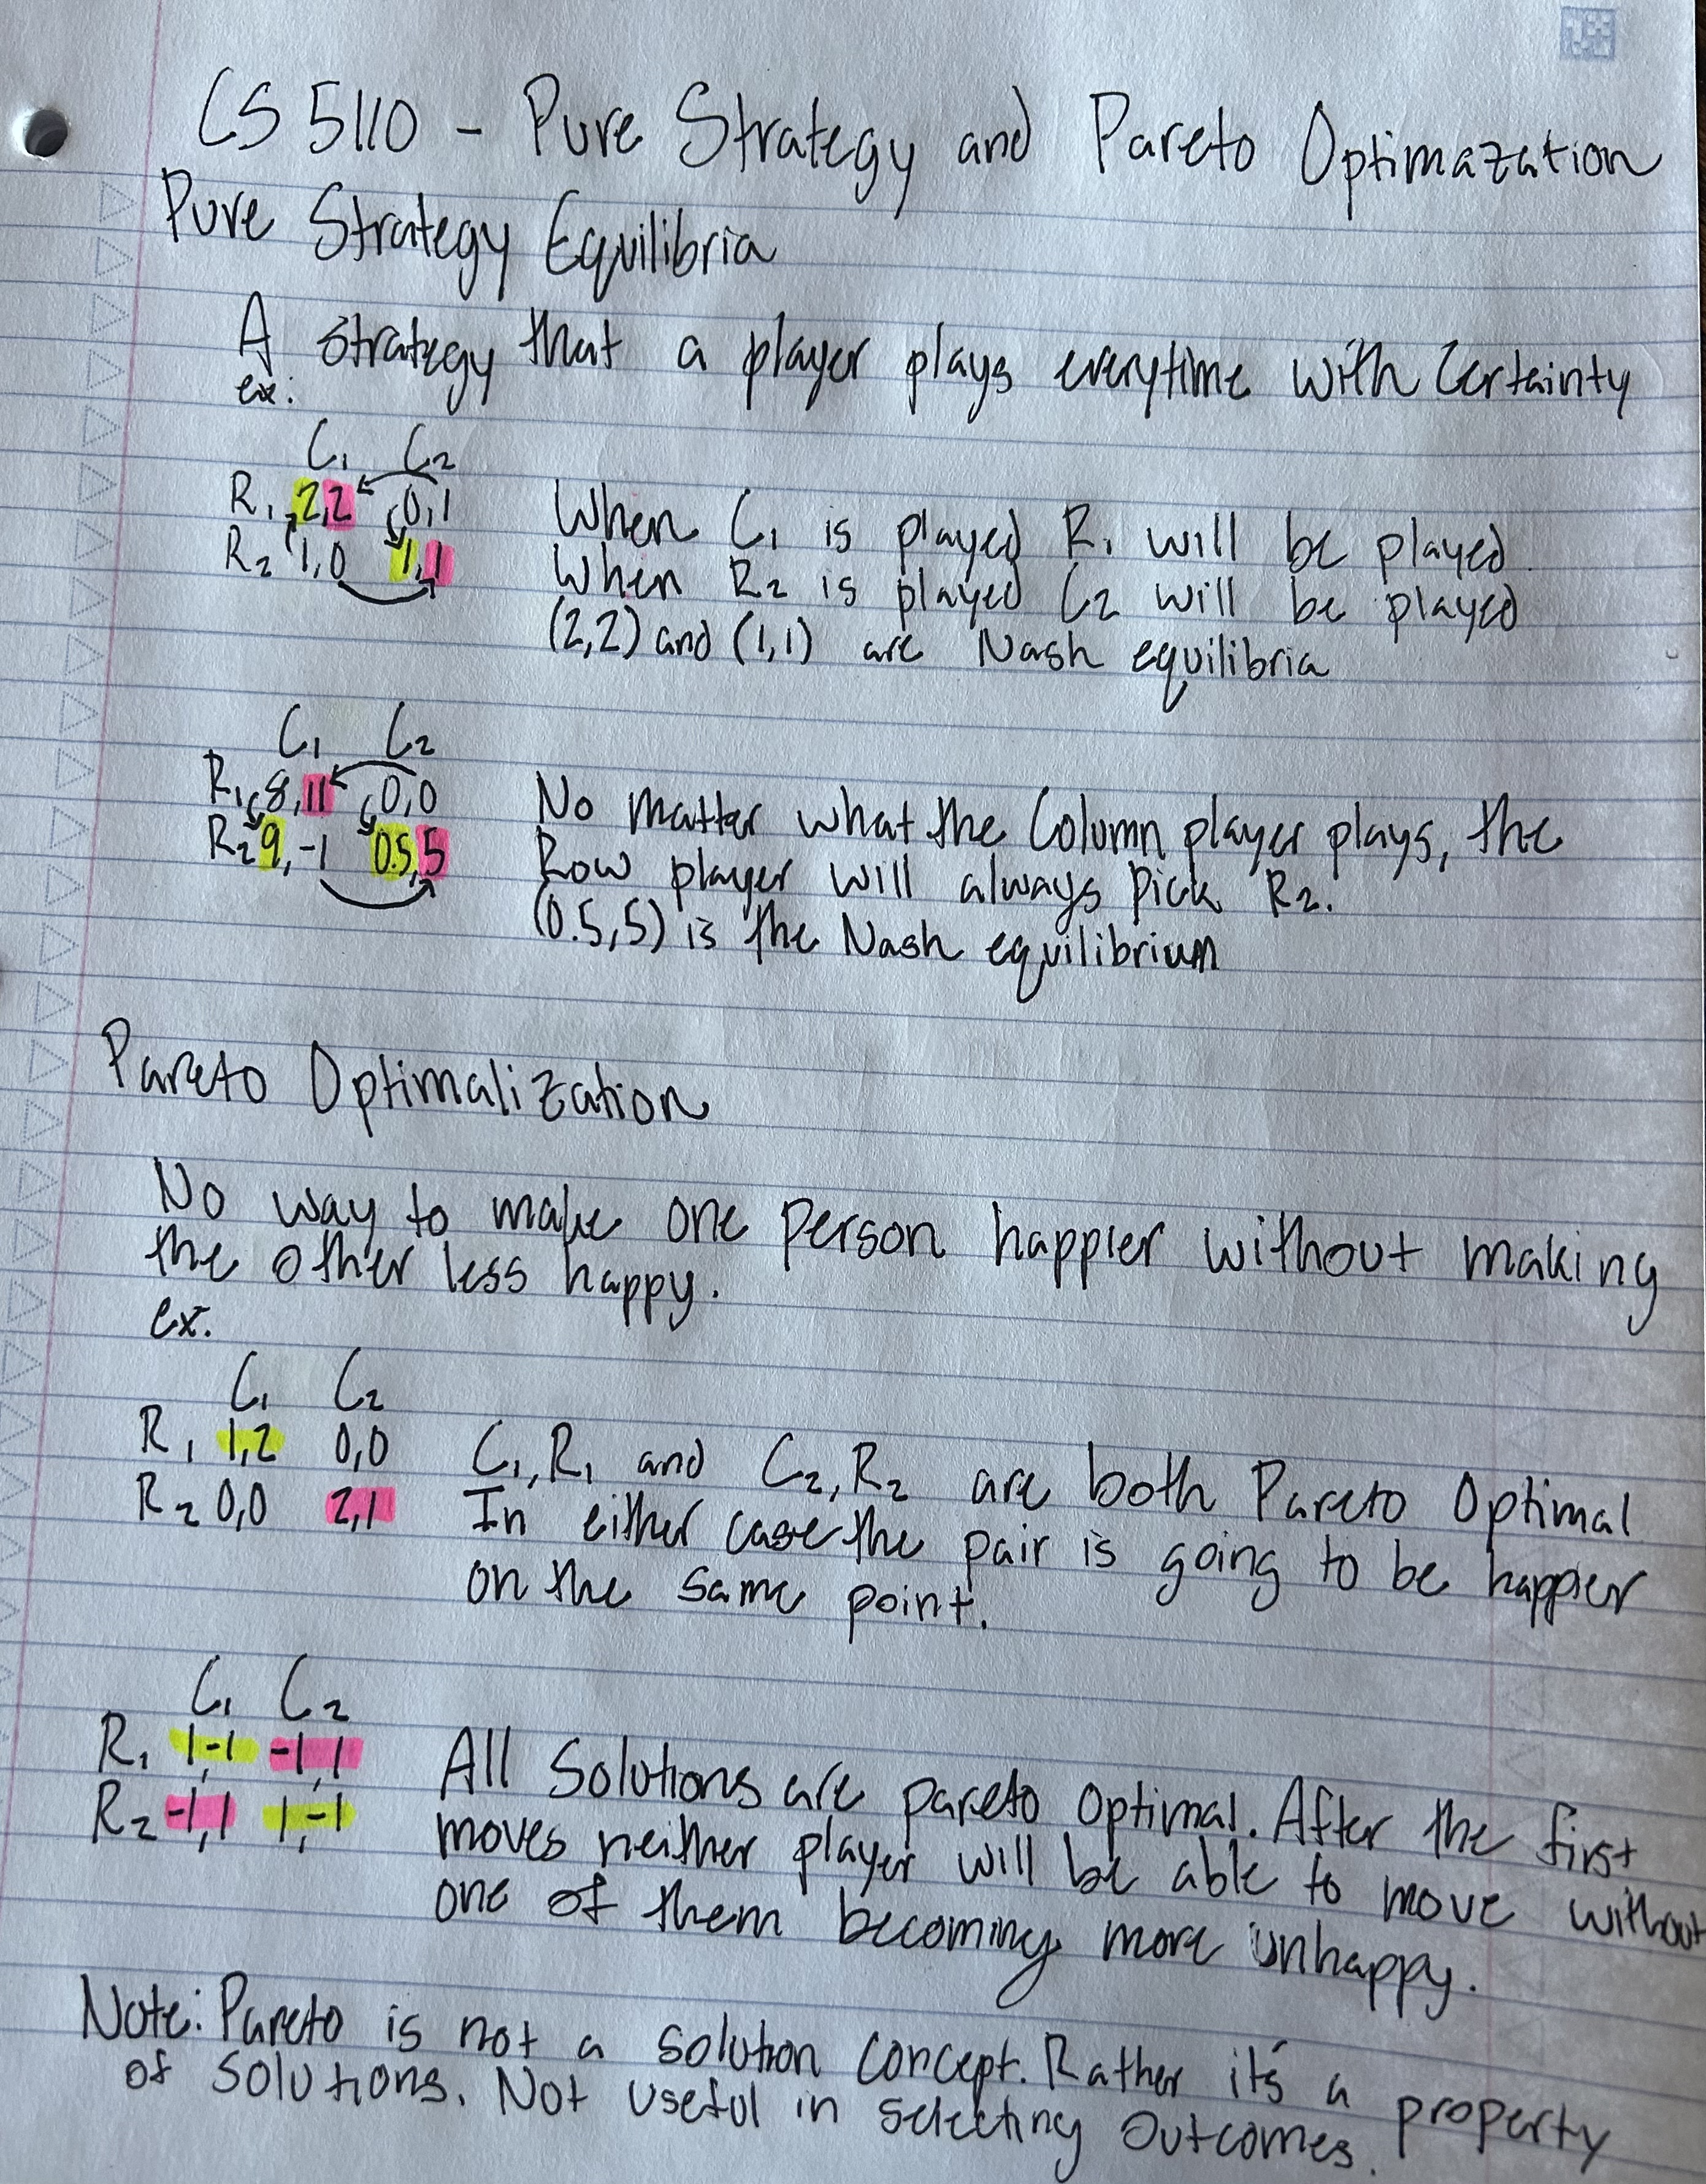 CS 5110 - Pure Strategy and Pareto Optimazation
Pure Strategy Equilibria
A strategy that a player plays everytime with Certainty
ex:
C₁ C₂
R₁ 2,2 0,1
R₂ 1,0 1,1
When C₁ is played R₁ will be played.
When R₂ is played C₂ will be played
(2,2) and (1,1) are Nash equilibria
C₁ C₂
R₁ 8,11 0,0
R₂ 9,-1 0.5,5
No matter what the Column player plays, the
Row player will always pick R₂.
(0.5,5) is the Nash equilibrium
Pareto Optimalization
No way to make one person happier without making
the other less happy.
ex.
C₁ C₂
R₁ 1,2 0,0
R₂ 0,0 2,1
C₁,R₁ and C₂,R₂ are both Pareto Optimal
In either case the pair is going to be happier
on the same point.
C₁ C₂
R₁ 1,-1 -1,1
R₂ -1,1 1,-1
All Solutions are pareto optimal. After the first
moves neither player will be able to move without
one of them becoming more unhappy.
Note: Pareto is not a solution concept. Rather it's a property
of solutions. Not useful in selecting outcomes.